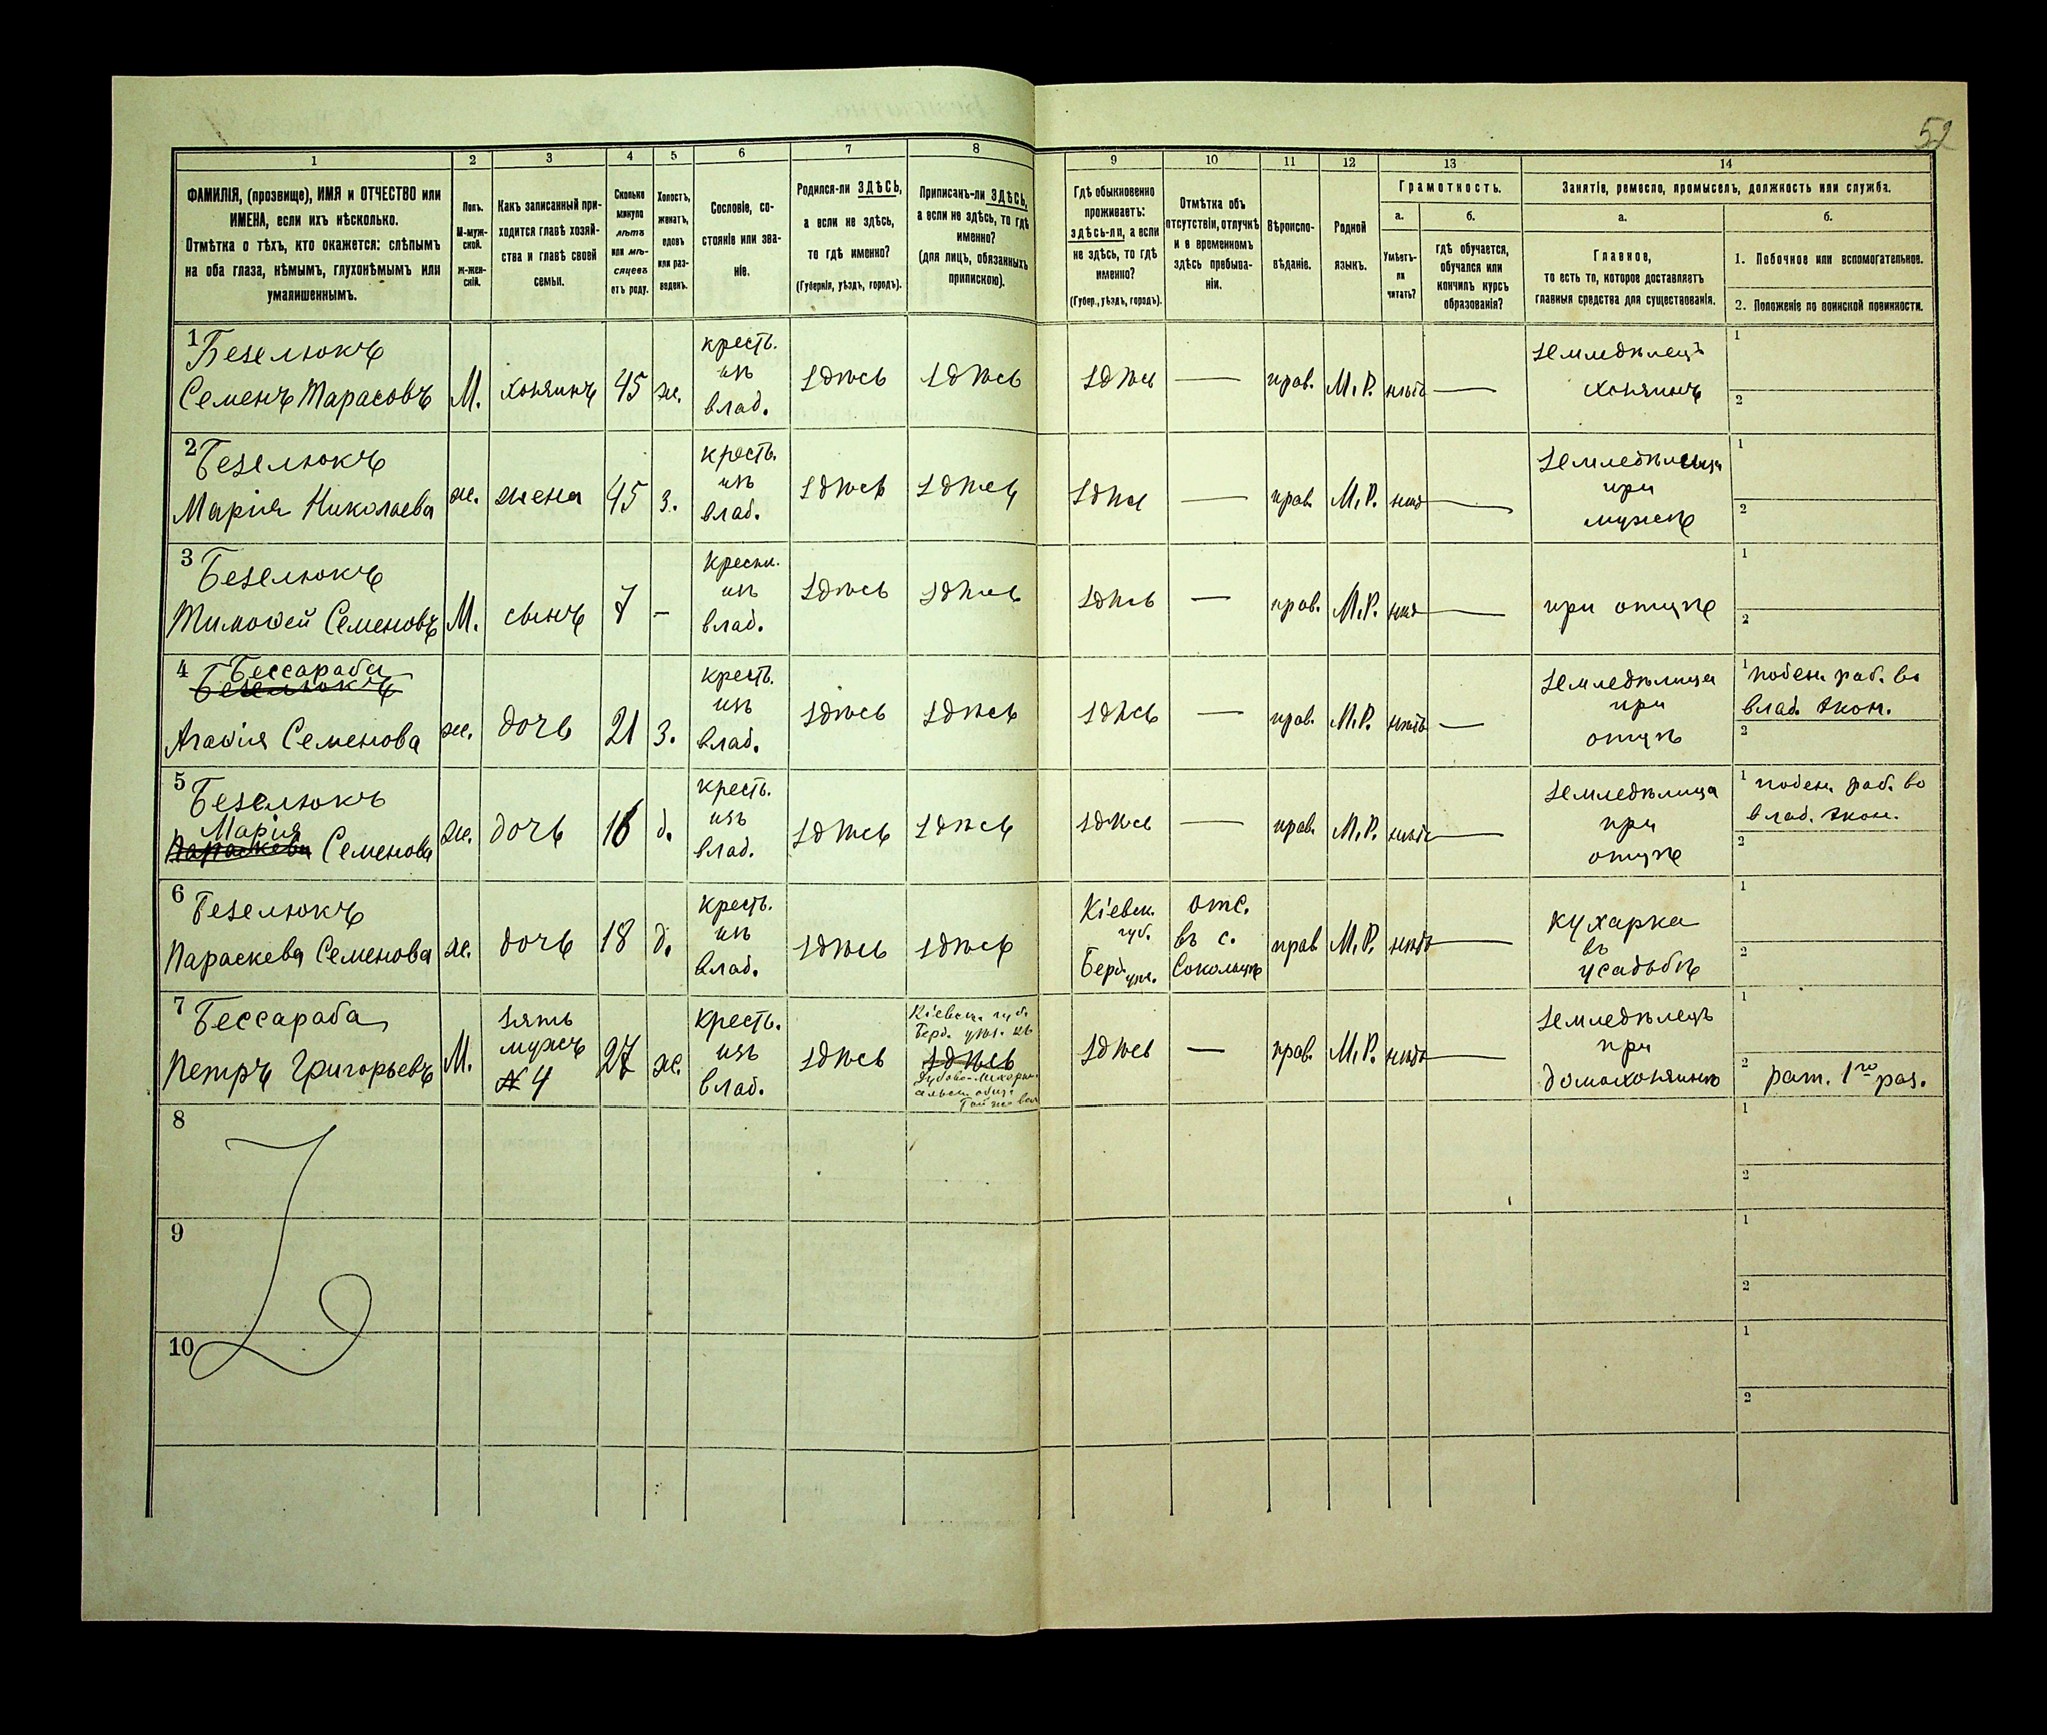 52
1 2 3 4 5 6 7 8 9 10 11 12 13 14
ФАМИЛІЯ, (прозвище), ИМЯ и ОТЧЕСТВО или
ИМЕНА, если ихъ нѣсколько.
Отмѣтка о тѣхъ, кто окажется: слѣпымъ
на оба глаза, нѣмымъ, глухонѣмымъ или
умалишеннымъ.
Полъ.
М-муж-
ской.
ж-жен-
скій.
Какъ записанный при-
ходится главѣ хозяй-
ства и главѣ своей
семьи.
Сколько
минуло
лѣтъ
или мѣ-
сяцевъ
отъ роду.
Холостъ,
женатъ,
вдовъ
или раз-
веденъ.
Сословіе, со-
стояніе или зва-
ніе.
Родился-ли ЗДѢСЬ,
а если не здѣсь,
то гдѣ именно?
(Губернія, уѣздъ, городъ).
Приписанъ-ли ЗДѢСЬ,
а если не здѣсь, то гдѣ
именно?
(для лицъ, обязанныхъ
припискою).
Гдѣ обыкновенно
проживаетъ:
здѣсь-ли, а если
не здѣсь, то гдѣ
именно?
(Губер., уѣздъ, городъ).
Отмѣтка объ
отсутствіи, отлучкѣ
и о временномъ
здѣсь пребыва-
ніи.
Вѣроиспо-
вѣданіе.
Родной
языкъ.
Грамотность.
а.
Умѣетъ-
ли
читать?
б.
гдѣ обучается,
обучался или
кончилъ курсъ
образованія?
Занятіе, ремесло, промыселъ, должность или служба.
а.
Главное,
то есть то, которое доставляетъ
главныя средства для существованія.
б.
1. Побочное или вспомогательное.
2. Положеніе по воинской повинности.
1 Безелюкъ
Семенъ Тарасовъ
М.
хозяинъ
45
ж.
крестъ.
изъ
влад.
здѣсь
здѣсь
здѣсь
—
прав.
М.Р.
нѣтъ
—
земледѣлецъ
хозяинъ
1
2
2 Безелюкъ
Марія Николаева
ж.
жена
45
з.
крестъ.
изъ
влад.
здѣсь
здѣсь
здѣсь
—
прав.
М.Р.
нѣт
—
при
мужѣ
1
2
3 Безелюкъ
Тимоѳей Семеновъ
М.
сынъ
7
—
крестъ.
изъ
влад.
здѣсь
здѣсь
здѣсь
—
прав.
М.Р.
нѣт
—
при отцѣ
1
2
4 Бессараба
Безелюкъ
Агаѳія Семенова
ж.
дочь
21
з.
крестъ.
изъ
влад.
здѣсь
здѣсь
здѣсь
—
прав.
М.Р.
нѣтъ
—
земледѣлица
при
отцѣ
1 поден. раб. во
влад. экон.
2
5 Безелюкъ
Марія
Параскева Семенова
ж.
дочь
16
д.
крестъ.
изъ
влад.
здѣсь
здѣсь
здѣсь
—
прав.
М.Р.
нѣтъ
—
земледѣлица
при
отцѣ
1 поден. раб. во
влад. экон.
2
6 Безелюкъ
Параскева Семенова
ж.
дочь
18
д.
крестъ.
изъ
влад.
здѣсь
здѣсь
Кіевск.
губ.
Берд. уѣз.
отс.
въ с.
Сокольцѣ
прав
М.Р.
нѣтъ
—
кухарка
въ
усадьбѣ
1
2
7 Бессараба
Петръ Григорьевъ
М.
зять
мужъ
№ 4
27
ж.
крестъ.
изъ
влад.
здѣсь
Кіевск. губ.
Берд. уѣз. къ
здѣсь
здѣсь
—
прав.
М.Р.
нѣтъ
—
земледѣлецъ
при
домохозяинѣ
1
2 рат. 1го раз.
8
1
2
9
1
2
10
1
2